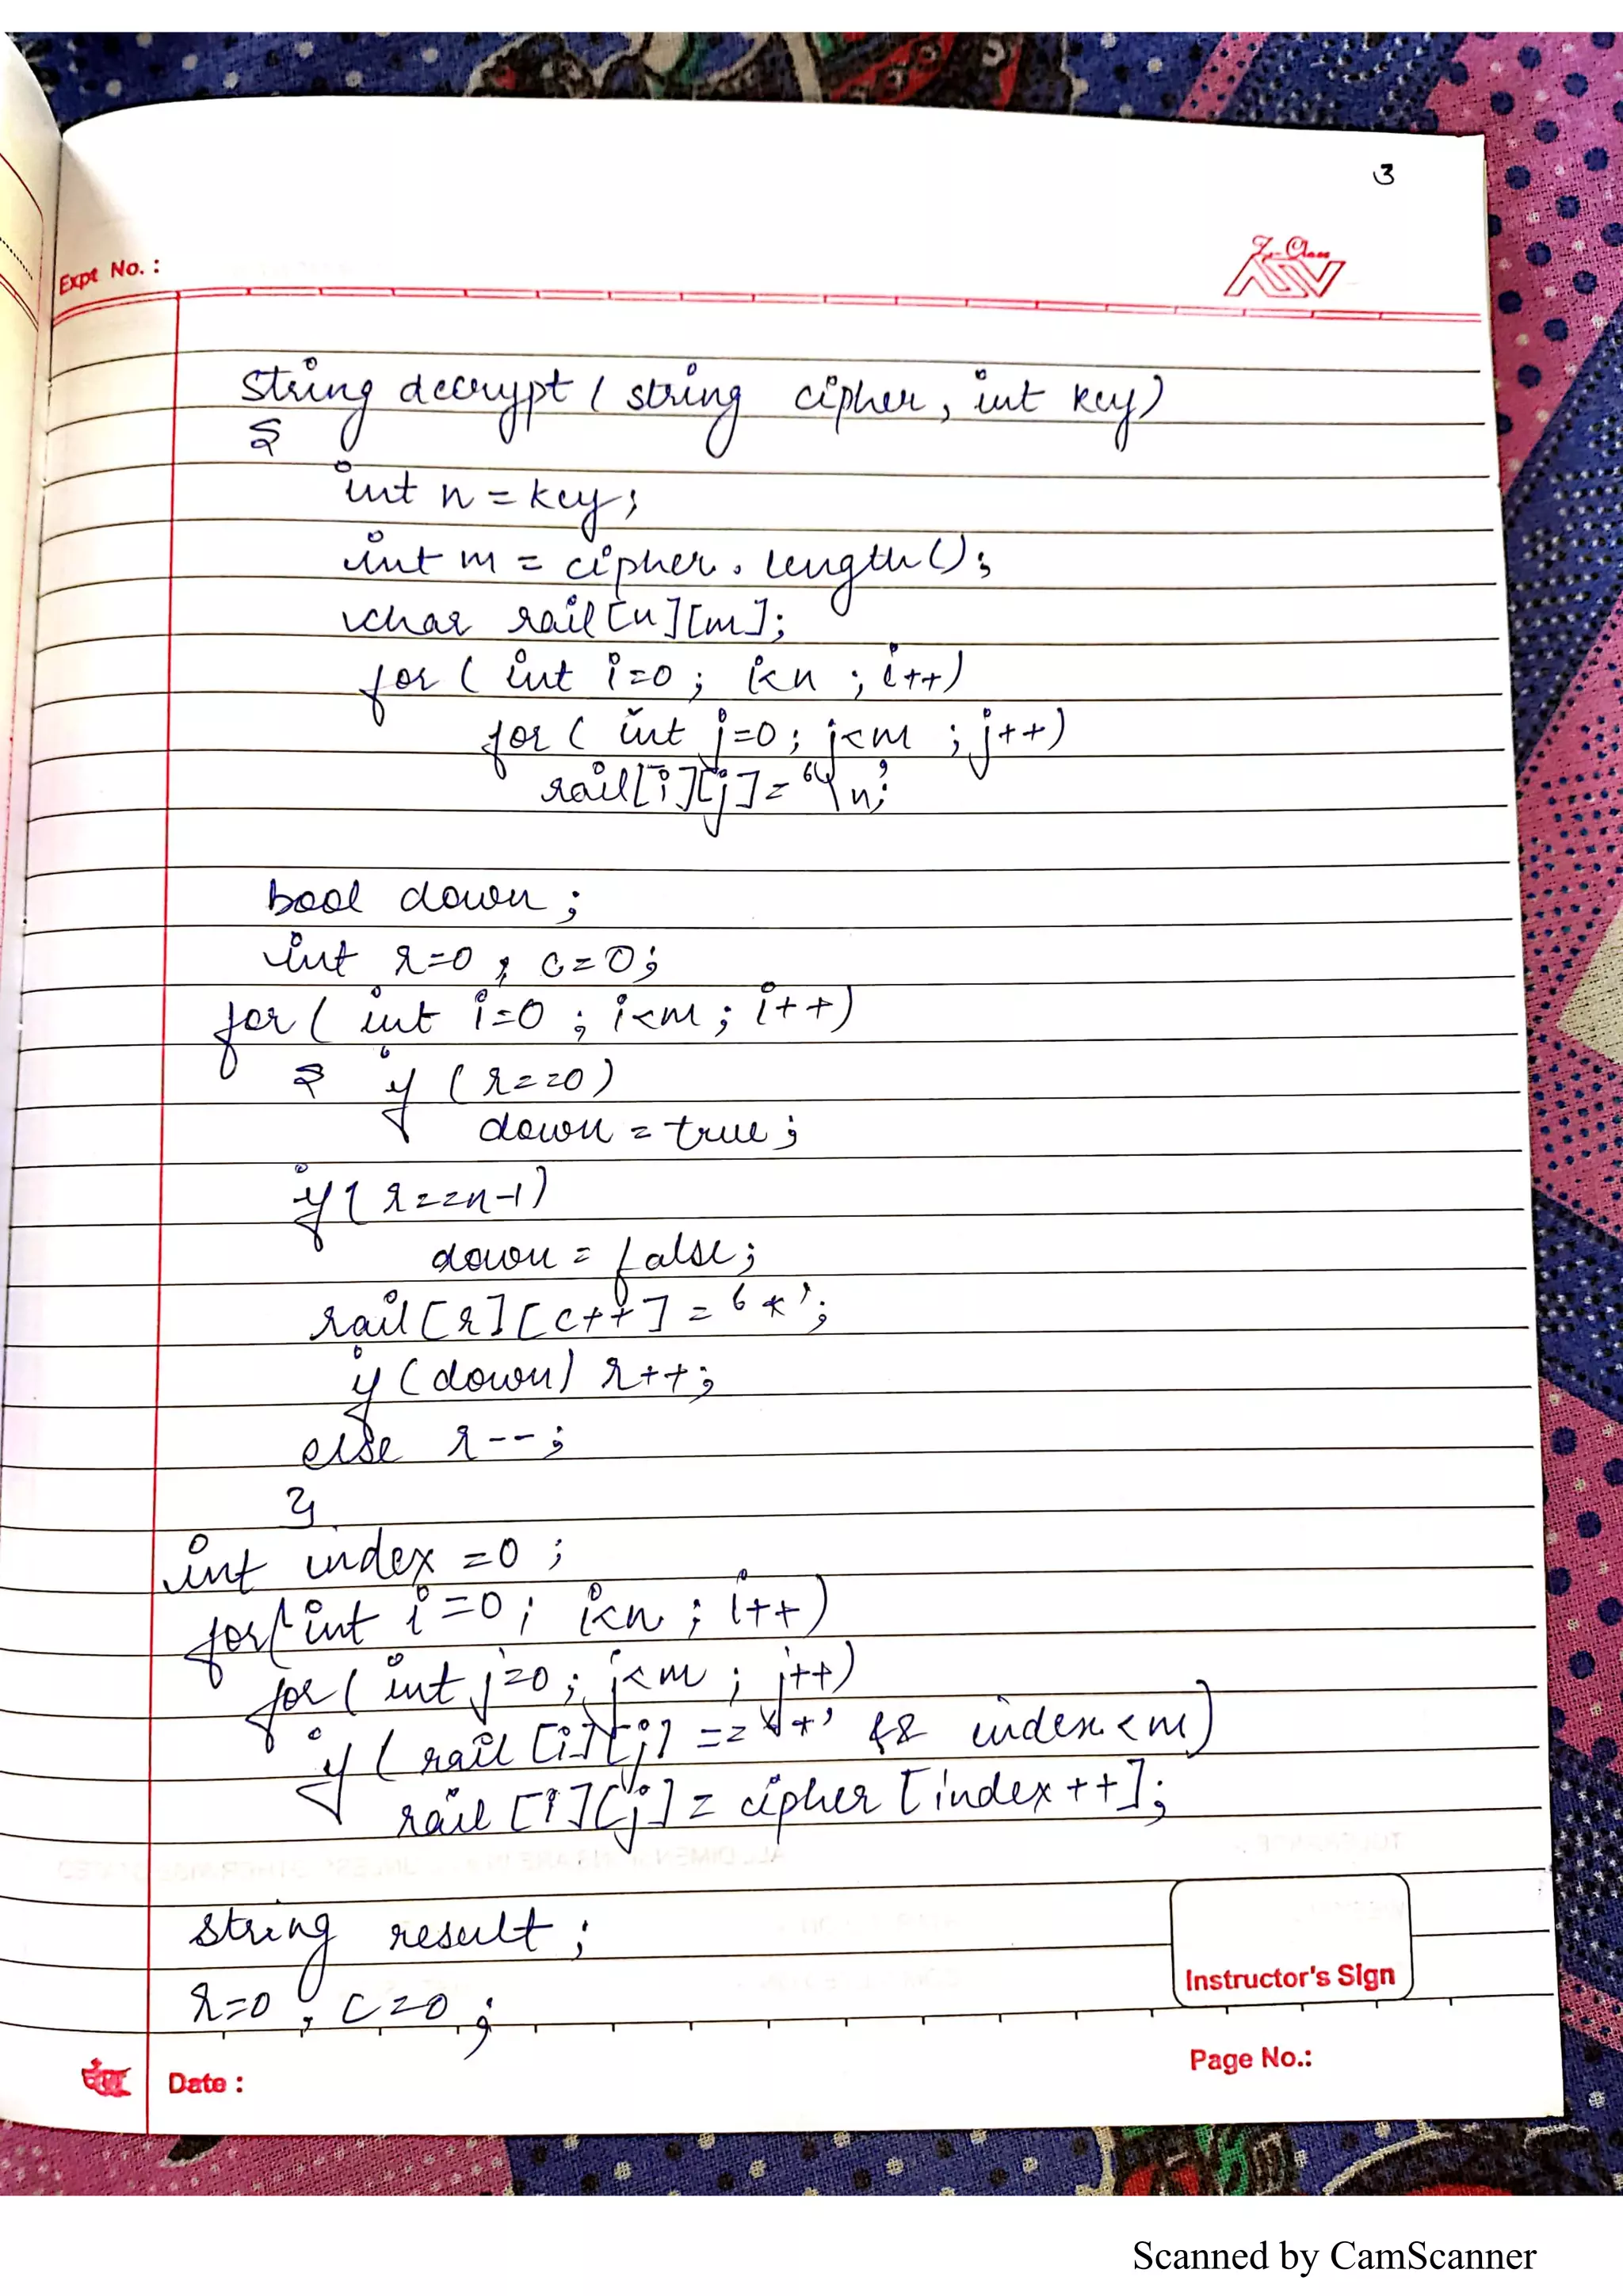 3
Z-Class
Expt No. :
string decrypt ( string cipher, int key)
{
int n = key;
int m = cipher. length();
char rail[n][m];
for ( int i=0 ; i<n ; i++)
for ( int j=0 ; j<m ; j++)
rail[i][j] = '\n';
bool down ;
int r=0 , c=0;
for ( int i=0 ; i<m ; i++)
{ if ( r==0 )
down = true ;
if ( r==n-1)
down = false ;
rail[r][c++] = '*';
if (down) r++;
else r--;
}
int index =0 ;
for( int i=0; i<n ; i++)
for ( int j=0 ; j<m ; j++)
if ( rail [i][j] == '*' && index < m)
rail [i][j] = cipher [index ++];
string result ;
r=0 , c=0 ;
Instructor's Sign
Page No.:
Date :
Scanned by CamScanner